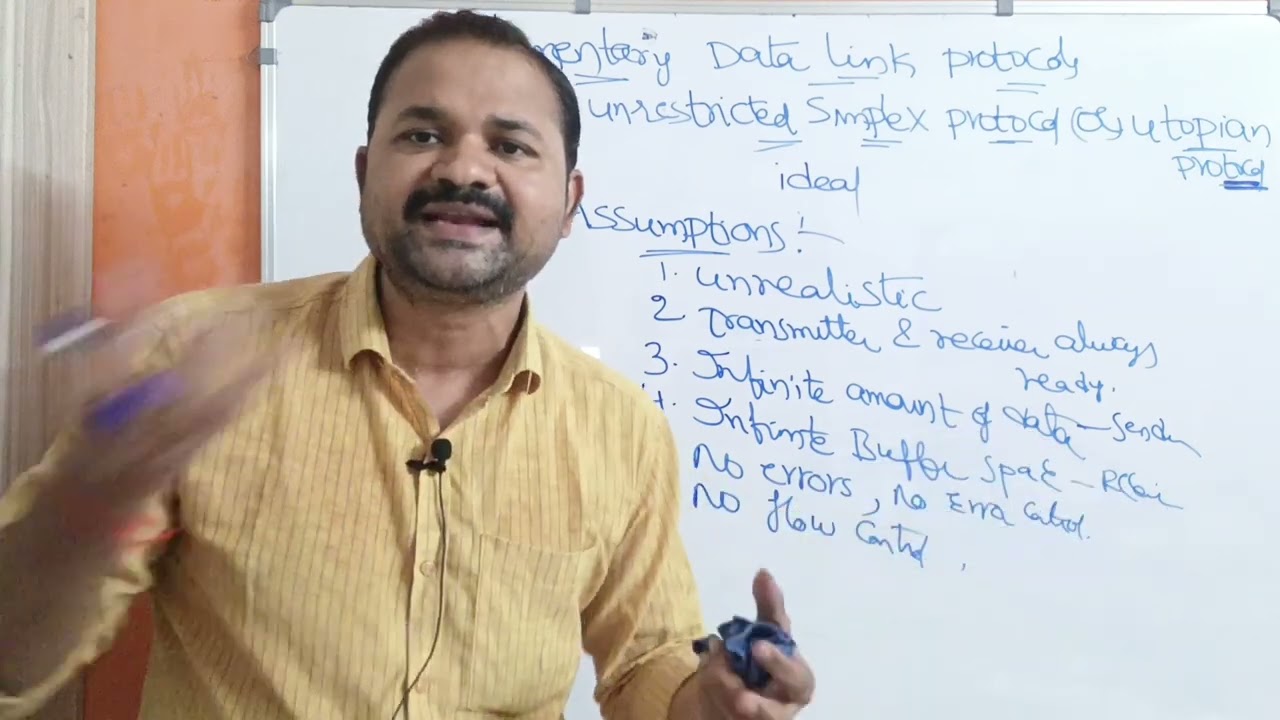 mentary Data link protocols
unrestricted Simplex protocol (or) utopian
protocol
ideal
Assumptions :-
1. unrealistic
2 Transmitter & receiver always
ready.
3. Infinite amount of data - Sender
4. Infinite Buffer Space -
No errors, No Error Control.
No flow Control,